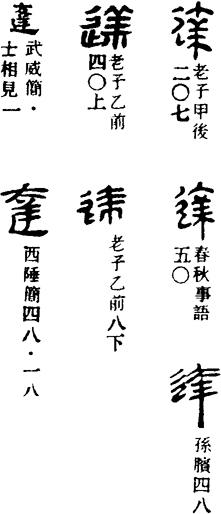 達
老子甲後
二〇七
達
春秋事語
五〇
達
孫臏四八
達
老子乙前
四〇上
達
老子乙前八下
達
武威簡・
士相見一
達
西陲簡四八・一八